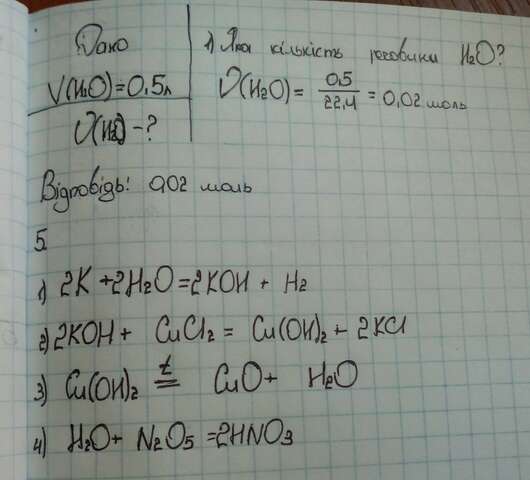 Дано
V(H₂O)=0,5л
ν(H₂O)-?
1) Яка кількість речовини H₂O?
ν(H₂O)= 0,5/22,4 = 0,02 моль
Відповідь: 0,02 моль
5.
1) 2K+2H₂O=2KOH + H₂
2) 2KOH + CuCl₂ = Cu(OH)₂ + 2KCl
3) Cu(OH)₂ =ᵗ CuO + H₂O
4) H₂O + N₂O₅ = 2HNO₃